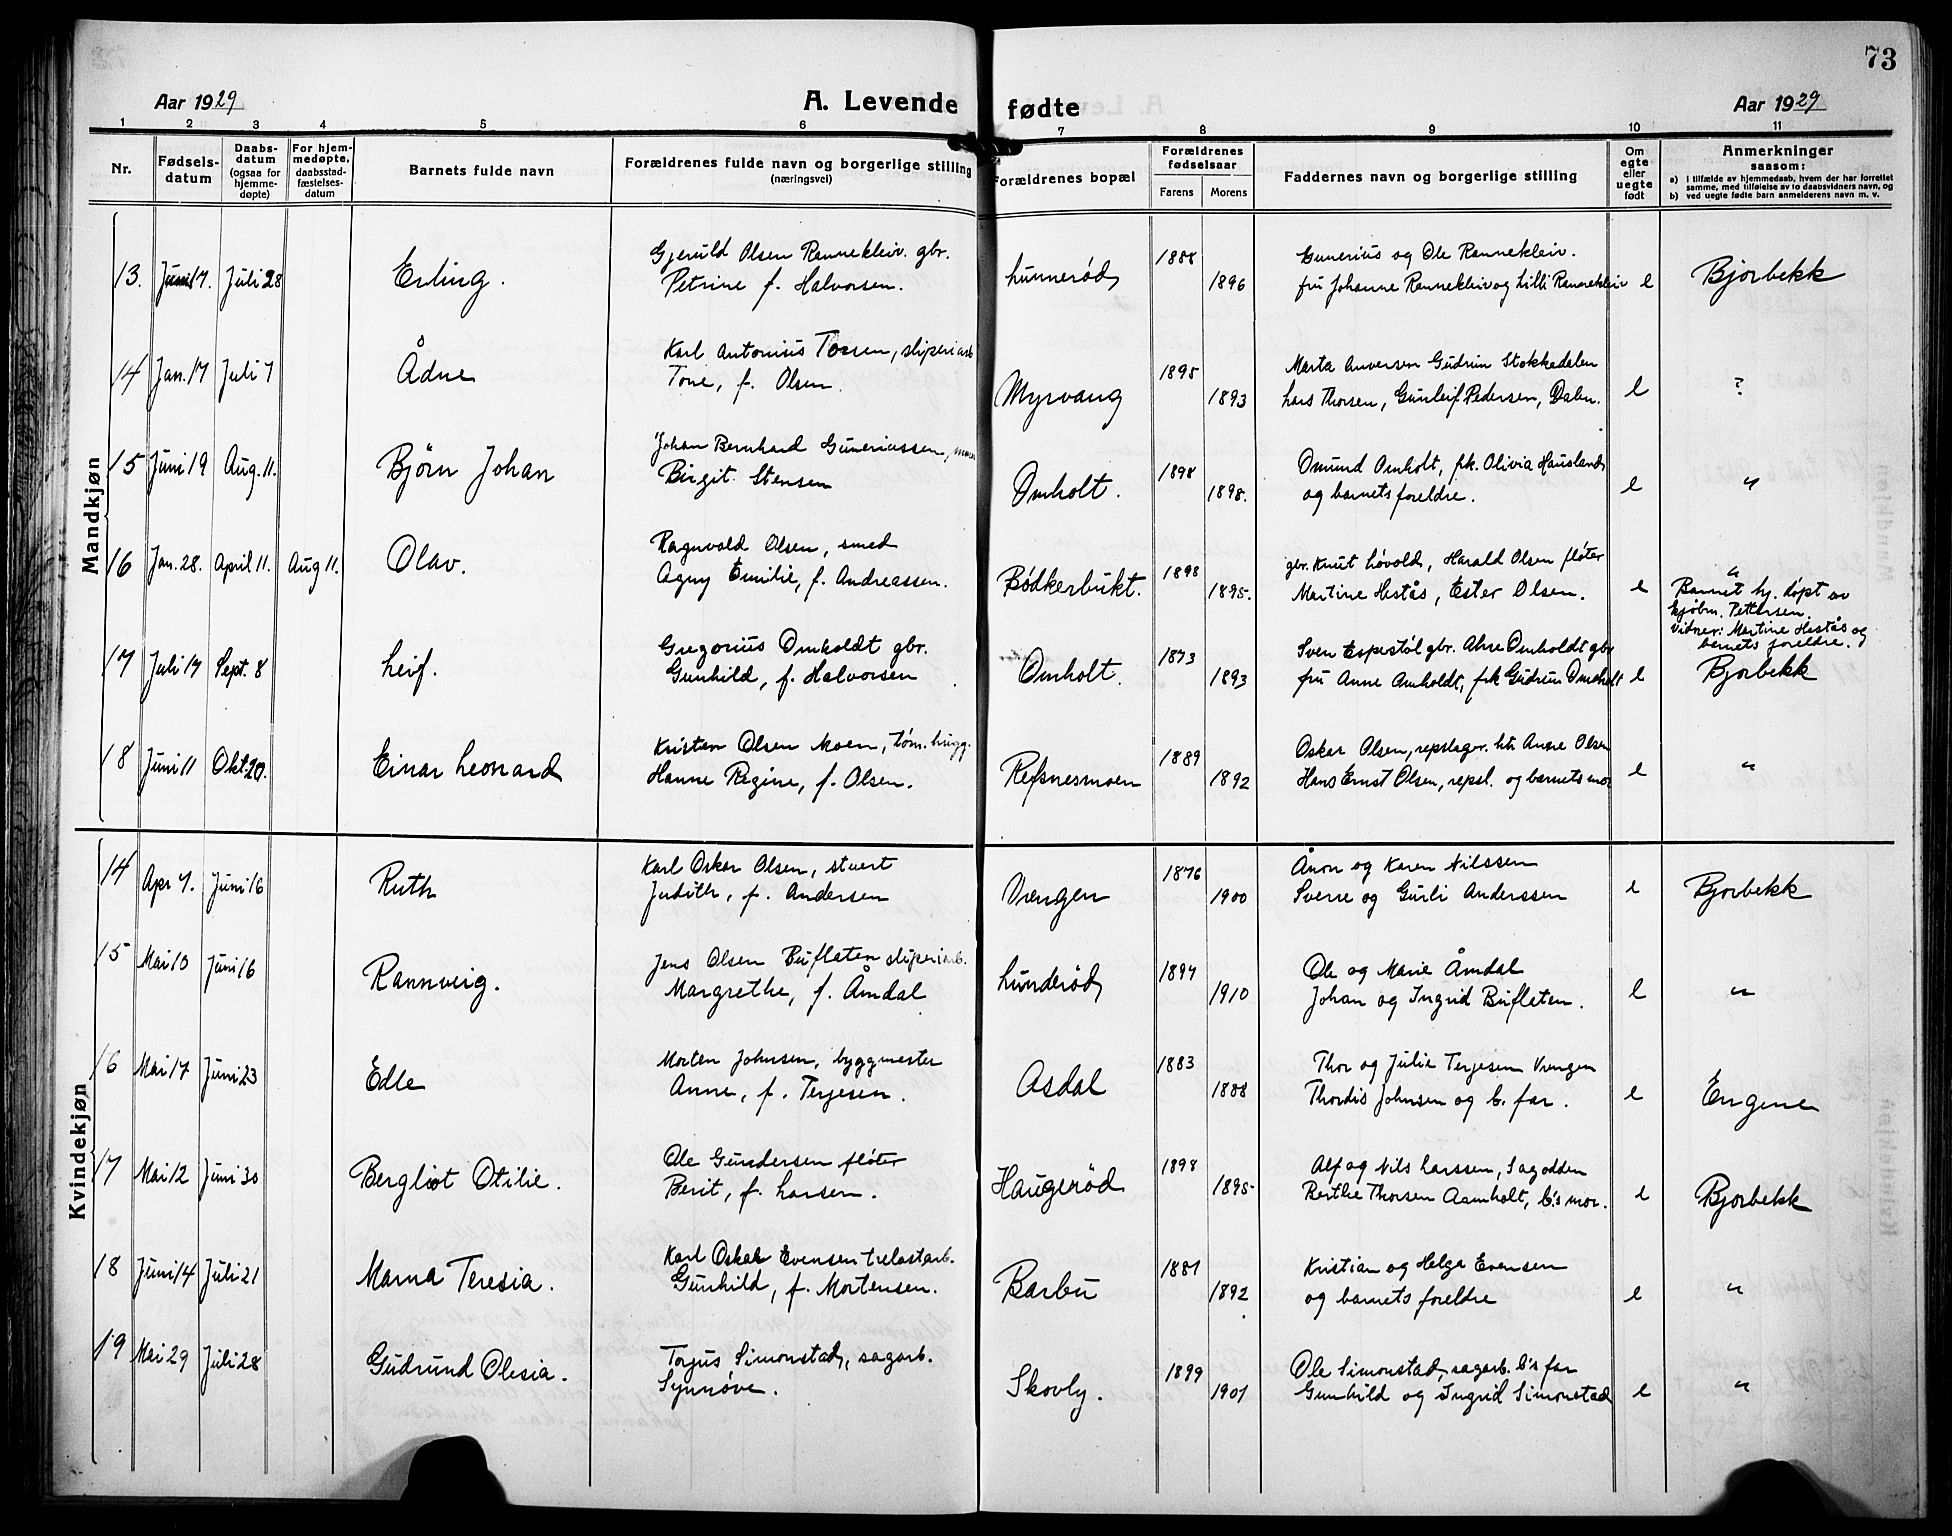 73
Aar 1929 A. Levende fødte Aar 1929
1 2 3 4 5 6 7 8 9 10 11
Nr. Fødsels-datum Daabs-datum (ogsaa for hjemme-døpte) For hjem-medøpte, daabsstad-fæstelses-datum Barnets fulde navn Forældrenes fulde navn og borgerlige stilling (næringsvei) Forældrenes bopæl Forældrenes fødselsaar Farens Morens Faddernes navn og borgerlige stilling Om egte eller uegte født Anmerkninger saasom: a) i tilfælde av hjemmedaab, hvem der har forrettet samme, med tilføielse av to daabsvidners navn, og b) ved uegte fødte barn anmelderens navn m. v.
Mandkjøn
13. Juni 17. Juli 28 Erling. Gjeruld Olsen Rannekleiv. gbr. 1888 Gunerius og Ole Rannekleiv.
Petrine f. Halvorsen. Lunnerød 1896 fru Johanne Rannekleiv og Lilli Rannekleiv e Bjorbekk
14 Jan. 17 Juli 7 Ådne Karl Antonius Torsen, sliperiarb 1895 Marta Anversen Gudrun Stokkedalen
Tone, f. Olsen. Myrvang 1893 Lars Thorsen, Gunleif Pedersen, Dalen. e ?
15 Juni 19 Aug. 11. Bjørn Johan Johan Bernhard Guneriussen, 1898 Omund Omholt, frk. Olivia Hausland
Birgit Stensen Omholt. 1898. og barnets foreldre. e "
16 Jan. 28. April 11. Aug 11. Olav. Ragnvald Olsen, smed 1898 gbr. Knut Løvold, Harald Olsen fløter "
Agny Emilie, f. Andreassen. Bødkerbukt. 1895. Martine Hestås, Ester Olsen. e Barnet hj. døpt av
kjøbm. Pettersen.
Vidner: Martine Hestås og
barnets foreldre.
17 Juli 17 Sept. 8 Leif. Gregorius Omholdt gbr. 1873 Sven Espestøl gbr. Omholdt gbr
Gunhild, f. Halvorsen Omholt. 1893 fru Anne Omholdt, frk Gudrun Omholt e Bjorbekk
18 Juni 11 Okt. 20. Einar Leonard Kristen Olsen Moen, tøm.hugg. 1889 Oskar Olsen, repslager. Anne Olsen
Hanne Regine, f. Olsen. Refsnesmoen 1892 Hans Ernst Olsen, repsl. og barnets mor e "
Kvindekjøn
14 Apr 7. Juni 16 Ruth Karl Oskar Olsen, stuert 1876 Ånon og Karen Nilssen
Judith, f. Andersen Vrengen 1900 Sverre og Gurli Anderssen e Bjorbekk
15 Mai 10 Juni 16 Rannveig. Jens Olsen Bufleten sliperiarb. 1894 Ole og Marie Åmdal
Margrethe, f. Åmdal Lunderød 1910 Johan og Ingrid Bufleten. e "
16 Mai 17 Juni 23 Edle Morten Johnsen, byggmester 1883 Thor og Julie Terjesen Vrengen
Anne, f. Terjesen. Asdal 1888 Thordis Johnsen og b. far. e Engene
17 Mai 12 Juni 30 Bergliot Otilie. Ole Gundersen fløter 1898 Alf og Nils Larssen, Sagodden
Berit, f. Larsen. Haugerød 1895- Berthe Thorsen Aamholt, b.'s mor. e Bjorbekk
18 Juni 14 Juli 21 Marna Teresia. Karl Oskar Evensen trelastarb. 1881 Kristian og Helga Evensen
Gunhild, f. Mortensen. Barbu 1892 og barnets foreldre e "
19 Mai 29 Juli 28 Gudrund Olesia. Torjus Simonstad, sagarb. 1899 Ole Simonstad, sagarb. b's far
Synnøve. Skovly. 1901 Gunhild og Ingrid Simonstad e "